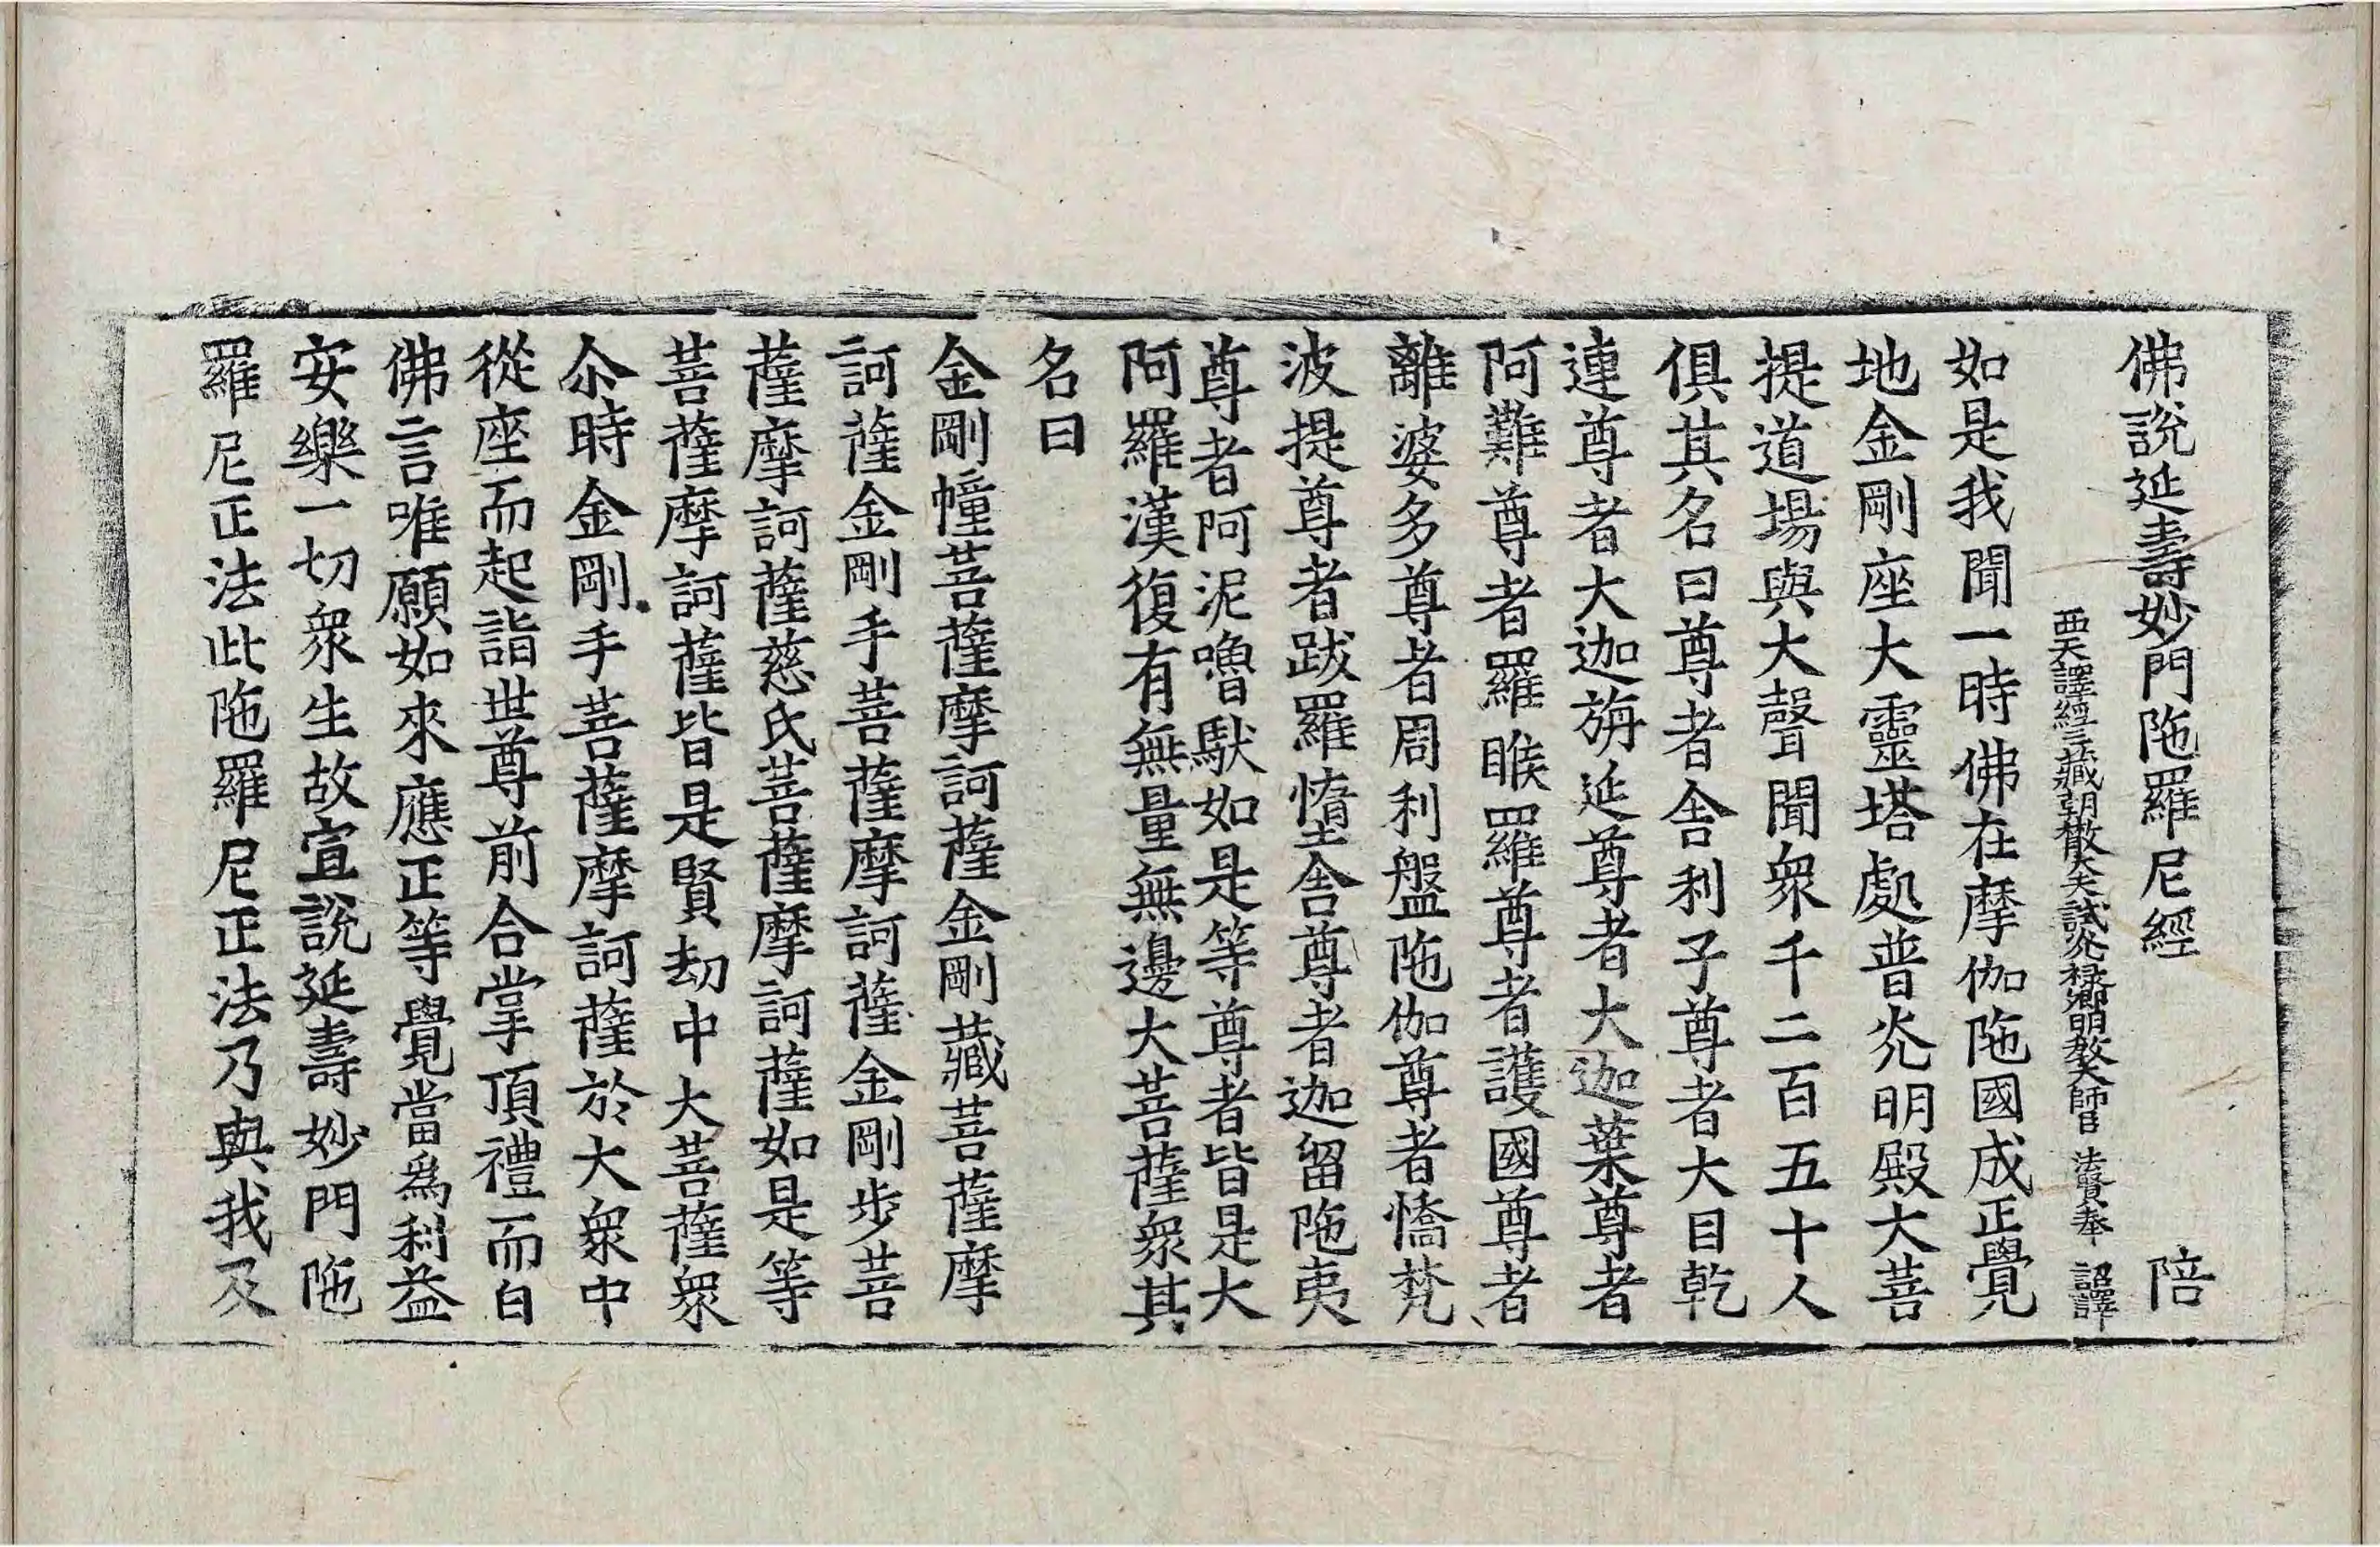 佛說延壽妙門陁羅尼經 陪
西天譯經三藏朝散大夫試光祿卿明教大師臣 法賢奉 詔譯
如是我聞一時佛在摩伽陁國成正覺
地金剛座大靈塔處普光明殿大菩
提道場與大聲聞衆千二百五十人
俱其名曰尊者舍利子尊者大目乾
連尊者大迦旃延尊者大迦葉尊者
阿難尊者羅睺羅尊者護國尊者
離婆多尊者周利盤陁伽尊者憍梵
波提尊者跋羅憜舍尊者迦留陁夷
尊者阿泥嚕馱如是等尊者皆是大
阿羅漢復有無量無邊大菩薩衆其
名曰
金剛幢菩薩摩訶薩金剛藏菩薩摩
訶薩金剛手菩薩摩訶薩金剛步菩
薩摩訶薩慈氏菩薩摩訶薩如是等
菩薩摩訶薩皆是賢劫中大菩薩衆
尒時金剛手菩薩摩訶薩於大衆中
從座而起詣世尊前合掌頂禮而白
佛言唯願如來應正等覺當爲利益
安樂一切衆生故宣說延壽妙門陁
羅尼正法此陁羅尼正法乃與我及